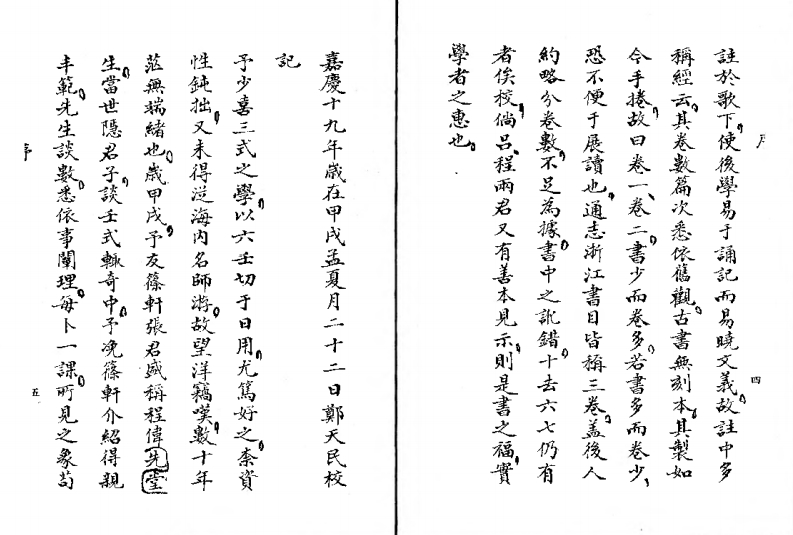 序
註於歌下使後學易于誦記而易曉文義故註中多
稱經云其卷數篇次悉依舊觀古書無刻本其製如
今手捲故曰卷一卷二書少而卷多若書多而卷少
恐不便于展讀也通志浙江書目皆稱三卷蓋後人
約略分卷數不足為據書中之訛錯十去六七仍有
者俟校倘呂程兩君又有善本見示則是書之福實
學者之惠也
四
嘉慶十九年歲在甲戌孟夏月二十二日鄭天民校
記
予少喜三式之學以六壬切于日用尤篤好之柰資
性鈍拙又未得從海内名師游故望洋竊嘆數十年
茫無端緒也歲甲戌予友篠軒張君盛稱程偉堂先
生當世隱君子談壬式輒奇中予凂篠軒介紹得親
丰範先生談數悉依事闡理每卜一課所見之象苟
序
五